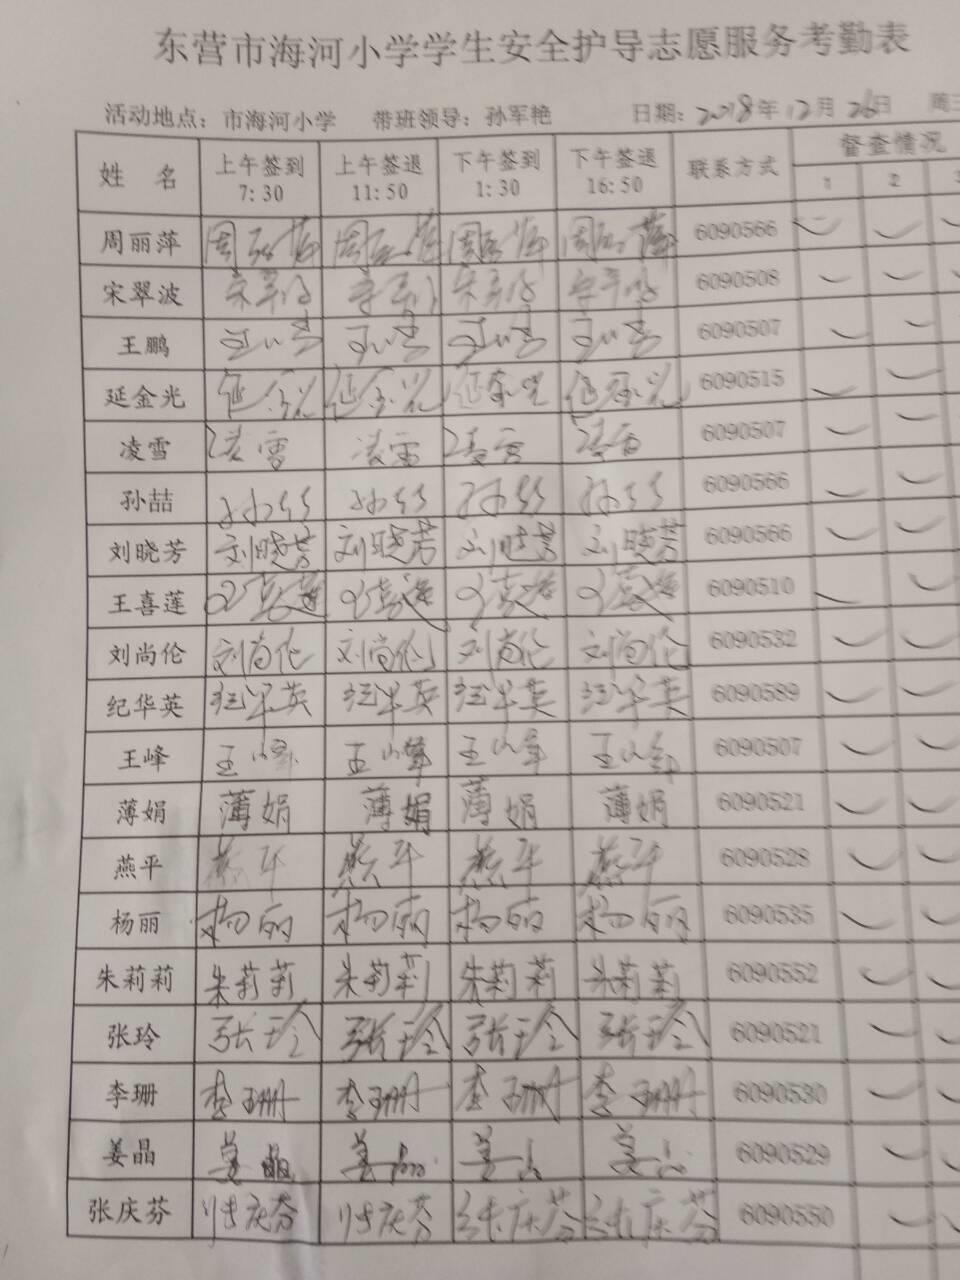 东营市海河小学学生安全护导志愿服务考勤表
活动地点：市海河小学 带班领导：孙军艳 日期：2018年12月26日 周三
姓 名 上午签到 7:30 上午签退 11:50 下午签到 1:30 下午签退 16:50 联系方式 督查情况 1 2 3
周丽萍 周丽萍 周丽萍 周丽萍 周丽萍 6090566
宋翠波 宋翠波 宋翠波 宋翠波 宋翠波 6090508
王鹏 6090507
延金光 延金光 延金光 延金光 延金光 6090515
凌雪 凌雪 凌雪 凌雪 凌雪 6090507
孙喆 6090566
刘晓芳 刘晓芳 刘晓芳 刘晓芳 刘晓芳 6090566
王喜莲 王喜莲 王喜莲 王喜莲 王喜莲 6090510
刘尚伦 刘尚伦 刘尚伦 刘尚伦 刘尚伦 6090532
纪华英 纪华英 纪华英 纪华英 纪华英 6090589
王峰 王峰 王峰 王峰 王峰 6090507
薄娟 薄娟 薄娟 薄娟 薄娟 6090521
燕平 燕平 燕平 燕平 燕平 6090528
杨丽 杨丽 杨丽 杨丽 杨丽 6090535
朱莉莉 朱莉莉 朱莉莉 朱莉莉 朱莉莉 6090552
张玲 张玲 张玲 张玲 张玲 6090521
李珊 李珊 李珊 李珊 李珊 6090530
姜晶 姜晶 姜晶 姜晶 姜晶 6090529
张庆芬 张庆芬 张庆芬 张庆芬 张庆芬 6090550